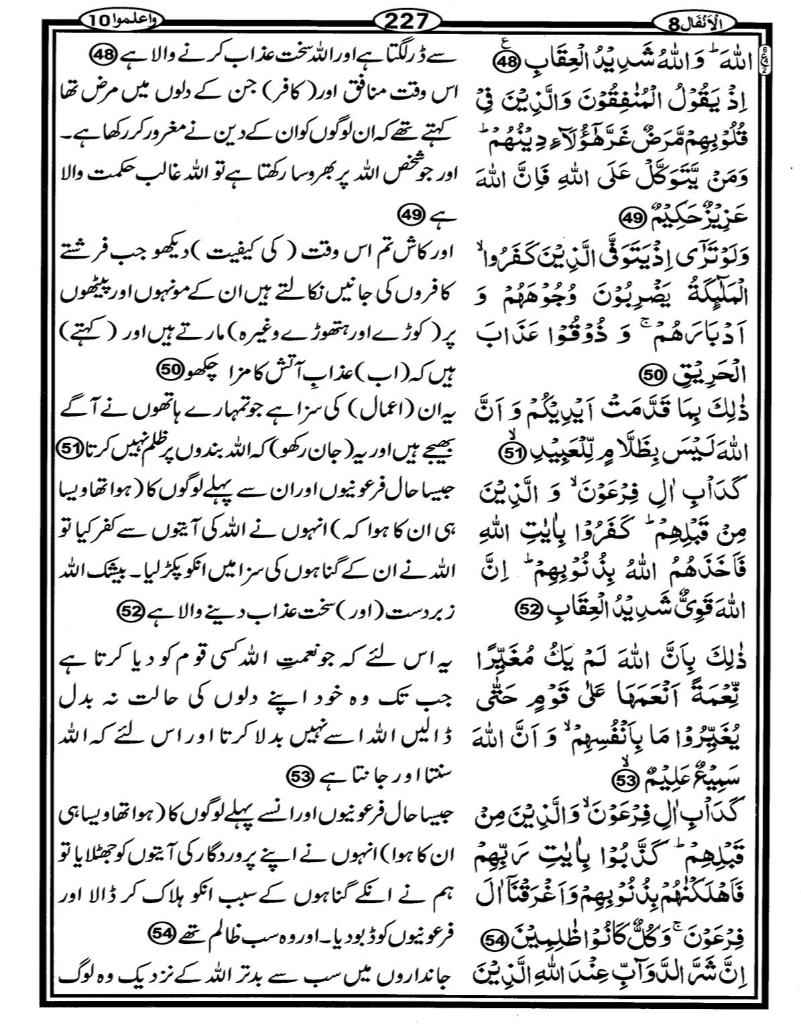 اَلْاَنْفَال 8
227
واعلموا 10
اللّٰهَ ؕ وَاللّٰهُ شَدِيْدُ الْعِقَابِ ع 48
اِذْ يَقُوْلُ الْمُنٰفِقُوْنَ وَالَّذِيْنَ فِيْ
قُلُوْبِهِمْ مَّرَضٌ غَرَّ هٰۤؤُلَآءِ دِيْنُهُمْ ؕ
وَمَنْ يَّتَوَكَّلْ عَلَى اللّٰهِ فَاِنَّ اللّٰهَ
عَزِيْزٌ حَكِيْمٌ 49
وَلَوْ تَرٰۤى اِذْ يَتَوَفَّى الَّذِيْنَ كَفَرُوا ۙ
الْمَلٰٓئِكَةُ يَضْرِبُوْنَ وُجُوْهَهُمْ وَ
اَدْبَارَهُمْ ۚ وَ ذُوْقُوْا عَذَابَ
الْحَرِيْقِ 50
ذٰلِكَ بِمَا قَدَّمَتْ اَيْدِيْكُمْ وَ اَنَّ
اللّٰهَ لَيْسَ بِظَلَّامٍ لِّلْعَبِيْدِ ۙ 51
كَدَاْبِ اٰلِ فِرْعَوْنَ ۙ وَ الَّذِيْنَ
مِنْ قَبْلِهِمْ ؕ كَفَرُوْا بِاٰيٰتِ اللّٰهِ
فَاَخَذَهُمُ اللّٰهُ بِذُنُوْبِهِمْ ؕ اِنَّ
اللّٰهَ قَوِيٌّ شَدِيْدُ الْعِقَابِ 52
ذٰلِكَ بِاَنَّ اللّٰهَ لَمْ يَكُ مُغَيِّرًا
نِّعْمَةً اَنْعَمَهَا عَلٰى قَوْمٍ حَتّٰى
يُغَيِّرُوْا مَا بِاَنْفُسِهِمْ ۙ وَ اَنَّ اللّٰهَ
سَمِيْعٌ عَلِيْمٌ ۙ 53
كَدَاْبِ اٰلِ فِرْعَوْنَ ۙ وَالَّذِيْنَ مِنْ
قَبْلِهِمْ ؕ كَذَّبُوْا بِاٰيٰتِ رَبِّهِمْ
فَاَهْلَكْنٰهُمْ بِذُنُوْبِهِمْ وَاَغْرَقْنَاۤ اٰلَ
فِرْعَوْنَ ۚ وَكُلٌّ كَانُوْا ظٰلِمِيْنَ 54
اِنَّ شَرَّ الدَّوَآبِّ عِنْدَ اللّٰهِ الَّذِيْنَ
سے ڈر لگتا ہے اور اللہ سخت عذاب کرنے والا ہے 48
اس وقت منافق اور (کافر) جن کے دلوں میں مرض تھا
کہتے تھے کہ ان لوگوں کو ان کے دین نے مغرور کر رکھا ہے۔
اور جو شخص اللہ پر بھروسا رکھتا ہے تو اللہ غالب حکمت والا
ہے 49
اور کاش تم اس وقت (کی کیفیت) دیکھو جب فرشتے
کافروں کی جانیں نکالتے ہیں ان کے مونہوں اور پیٹھوں
پر (کوڑے اور ہتھوڑے وغیرہ) مارتے ہیں اور (کہتے)
ہیں کہ (اب) عذابِ آتش کا مزا چکھو 50
یہ ان (اعمال) کی سزا ہے جو تمہارے ہاتھوں نے آگے
بھیجے ہیں اور یہ (جان رکھو) کہ اللہ بندوں پر ظلم نہیں کرتا 51
جیسا حال فرعونیوں اور ان سے پہلے لوگوں کا (ہوا تھا ویسا
ہی ان کا ہوا کہ) انہوں نے اللہ کی آیتوں سے کفر کیا تو
اللہ نے ان کے گناہوں کی سزا میں انکو پکڑ لیا۔ بیشک اللہ
زبردست (اور) سخت عذاب دینے والا ہے 52
یہ اس لئے کہ جو نعمتِ اللہ کسی قوم کو دیا کرتا ہے
جب تک وہ خود اپنے دلوں کی حالت نہ بدل
ڈالیں اللہ اسے نہیں بدلا کرتا اور اس لئے کہ اللہ
سنتا اور جانتا ہے 53
جیسا حال فرعونیوں اور انسے پہلے لوگوں کا (ہوا تھا ویسا ہی
ان کا ہوا) انہوں نے اپنے پروردگار کی آیتوں کو جھٹلایا تو
ہم نے انکے گناہوں کے سبب انکو ہلاک کر ڈالا اور
فرعونیوں کو ڈبو دیا۔ اور وہ سب ظالم تھے 54
جانداروں میں سب سے بدتر اللہ کے نزدیک وہ لوگ